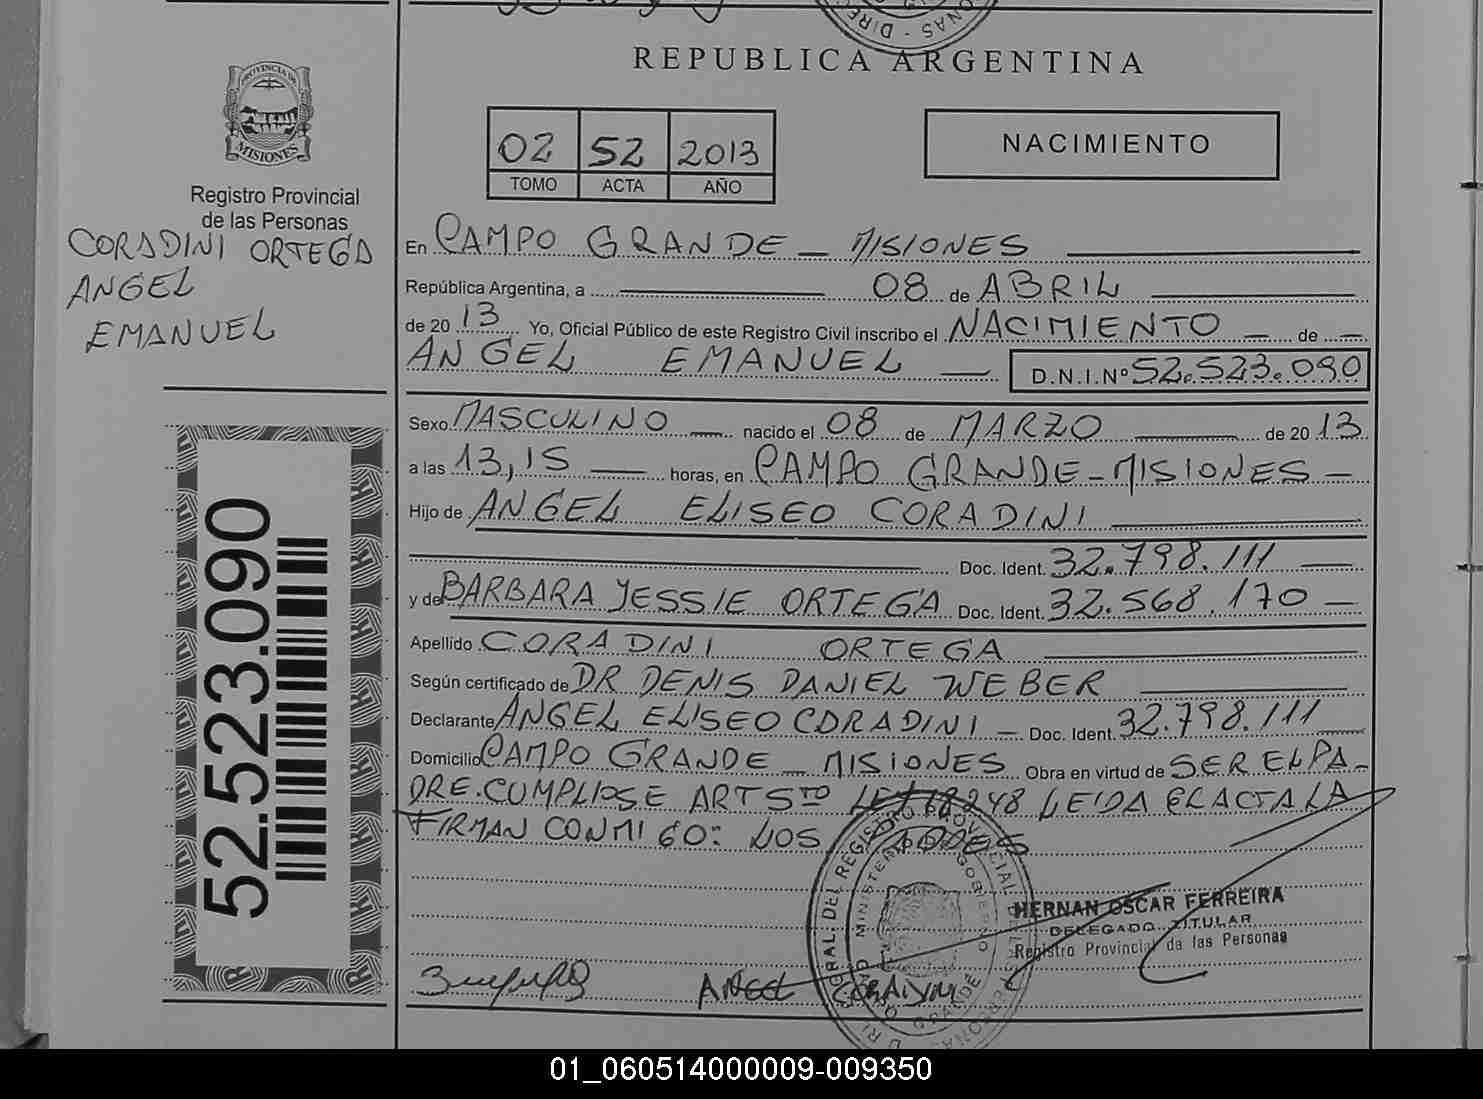 REPUBLICA ARGENTINA
PROVINCIA DE
MISIONES
Registro Provincial
de las Personas
CORADINI ORTEGA
ANGEL
EMANUEL
02 52 2013
TOMO ACTA AÑO
NACIMIENTO
En CAMPO GRANDE - MISIONES
República Argentina, a 08 de ABRIL
de 20 13 Yo, Oficial Público de este Registro Civil inscribo el NACIMIENTO de
ANGEL EMANUEL D.N.I.Nº 52.523.090
Sexo MASCULINO nacido el 08 de MARZO de 20 13
a las 13,15 horas, en CAMPO GRANDE - MISIONES
Hijo de ANGEL ELISEO CORADINI
Doc. Ident. 32.798.111
y de BARBARA YESSIE ORTEGA Doc. Ident. 32.568.170
Apellido CORADINI ORTEGA
Según certificado de DR DENIS DANIEL WEBER
Declarante ANGEL ELISEO CORADINI Doc. Ident. 32.798.111
Domicilio CAMPO GRANDE - MISIONES Obra en virtud de SER EL PA-
DRE. CUMPLIOSE ART 5to LEY 18248 LEIDA EL ACTA LA
FIRMAN CONMIGO: LOS
HERNAN OSCAR FERREIRA
DELEGADO TITULAR
Registro Provincial de las Personas
ANGEL CORADINI
52.523.090
01_060514000009-009350